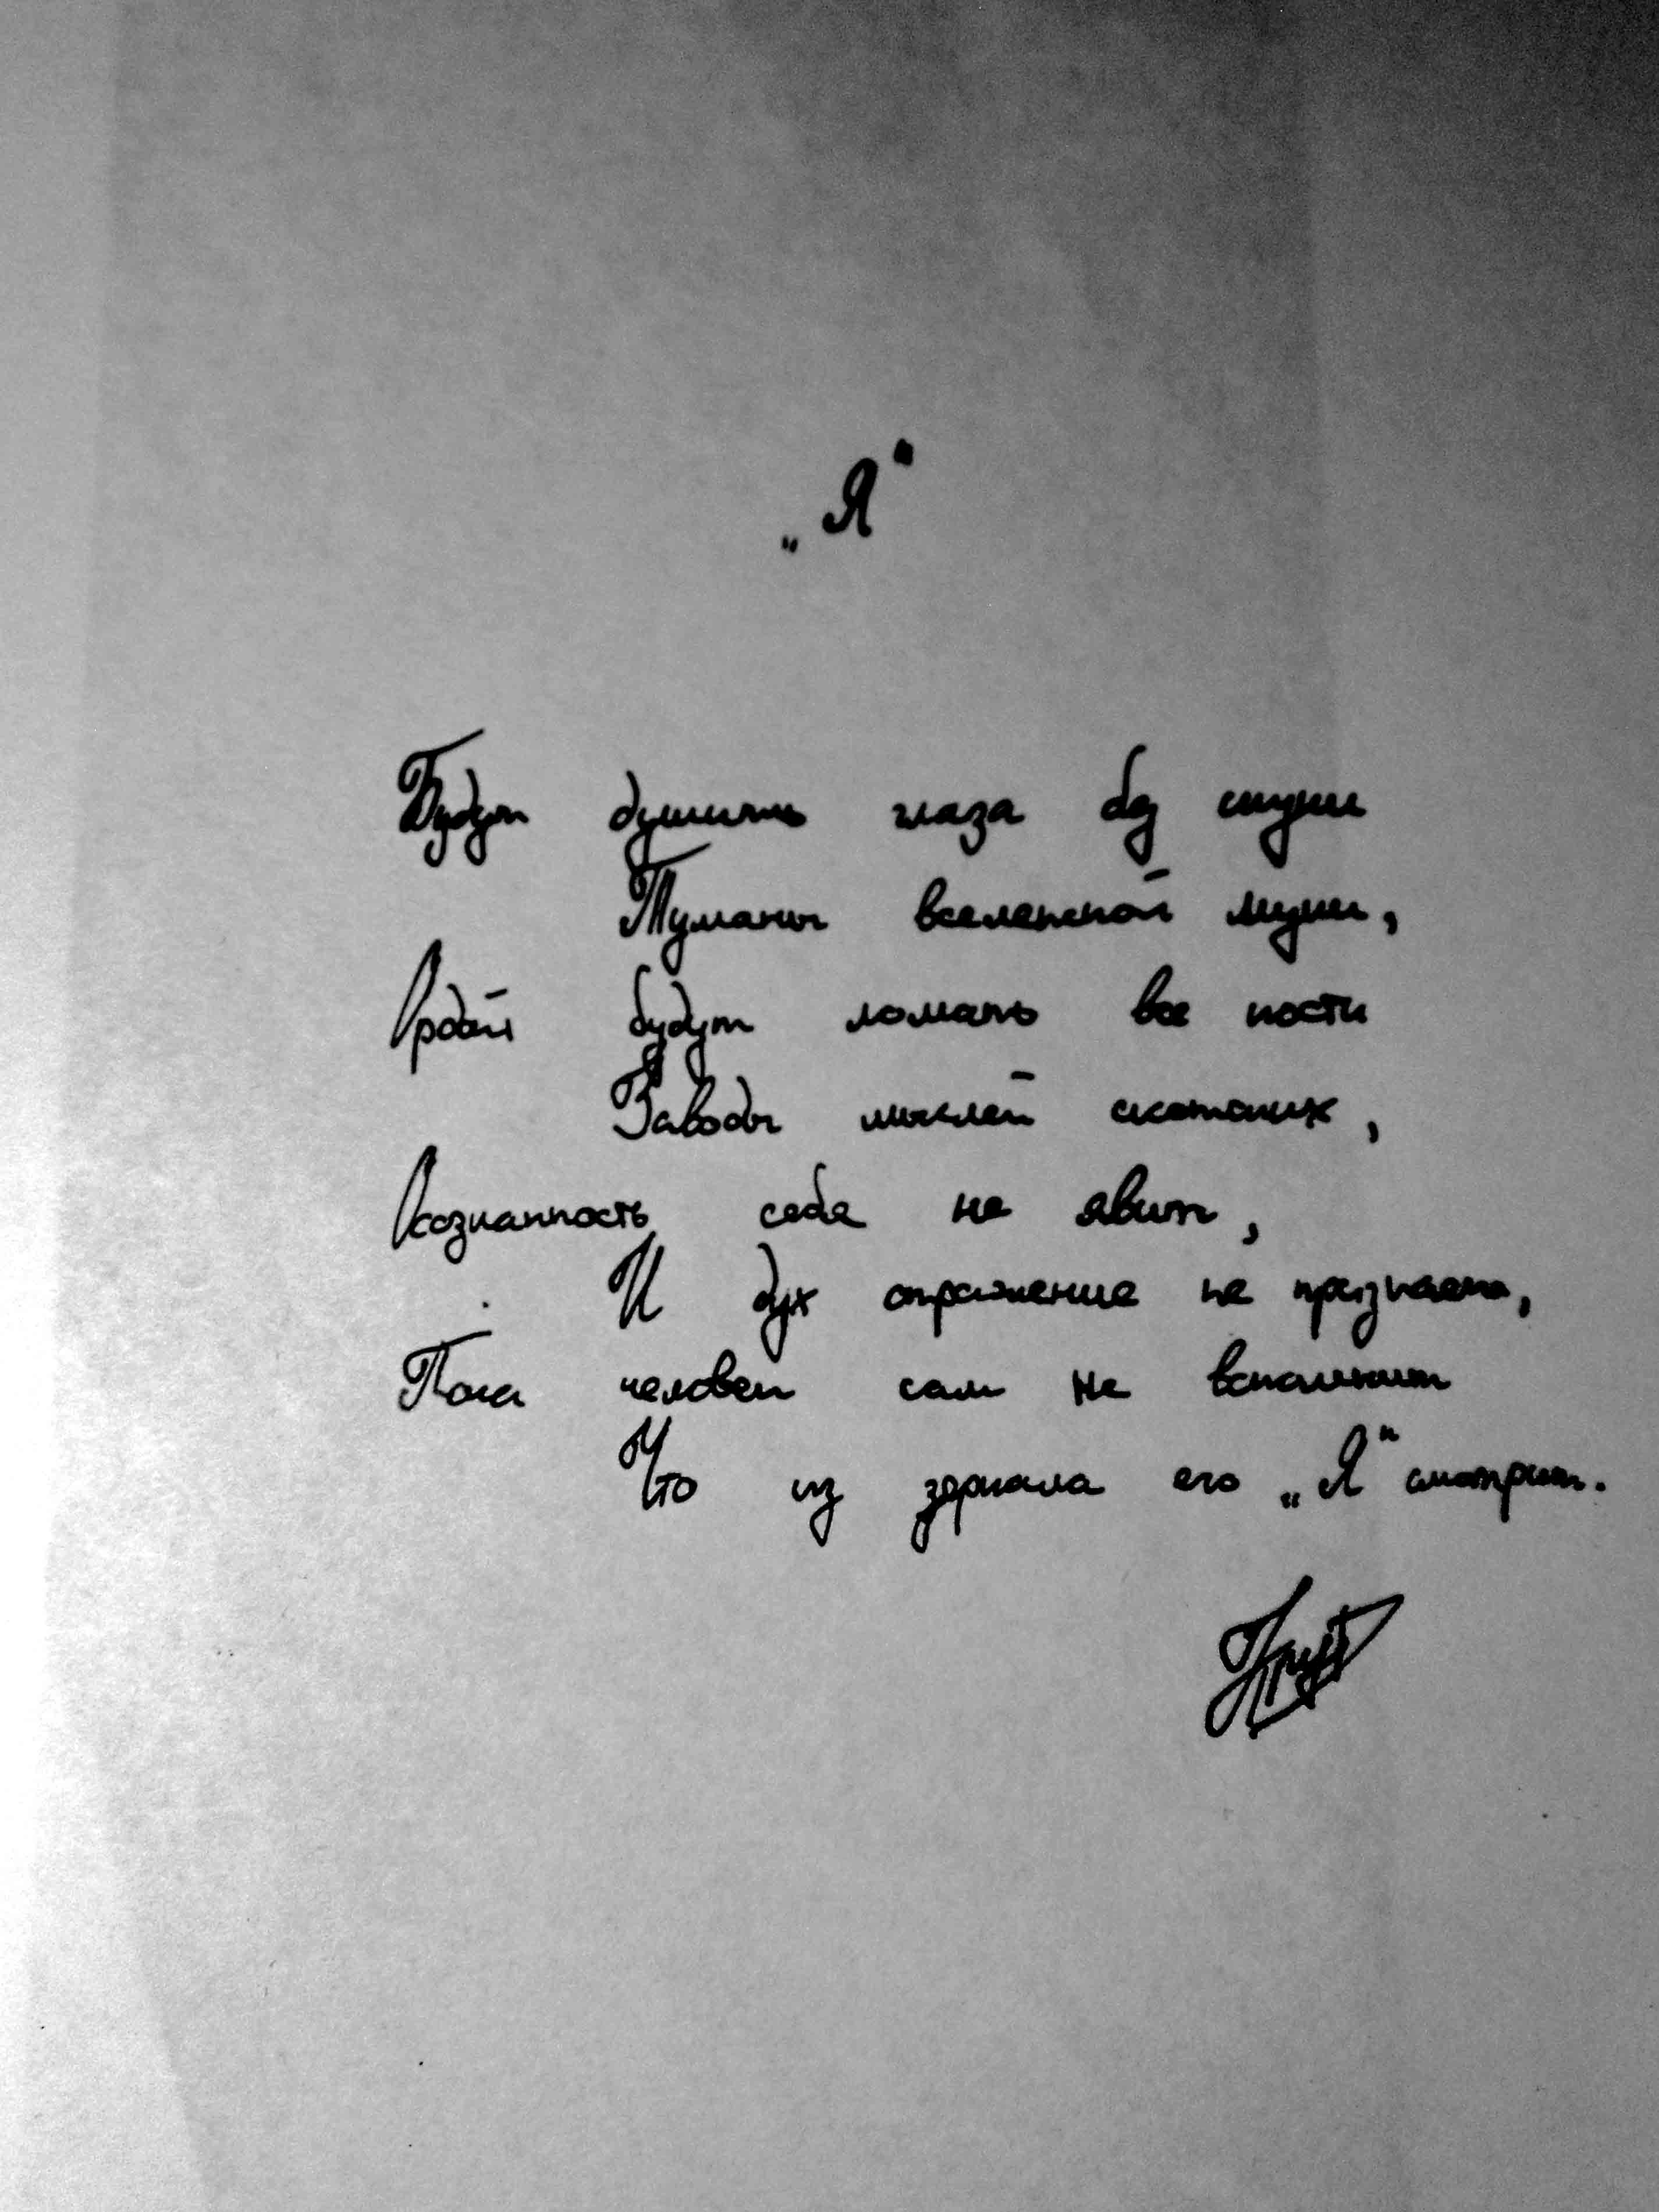 „Я“
Будут душить глаза без скуки
Туманы вселенской муки,
Ордой будут ломать все кости
Заводы мыслей скотских,
Осознанность себя не явит,
И дух отражение не признает,
Пока человек сам не вспомнит
Что из зеркала его „Я“ смотрит.